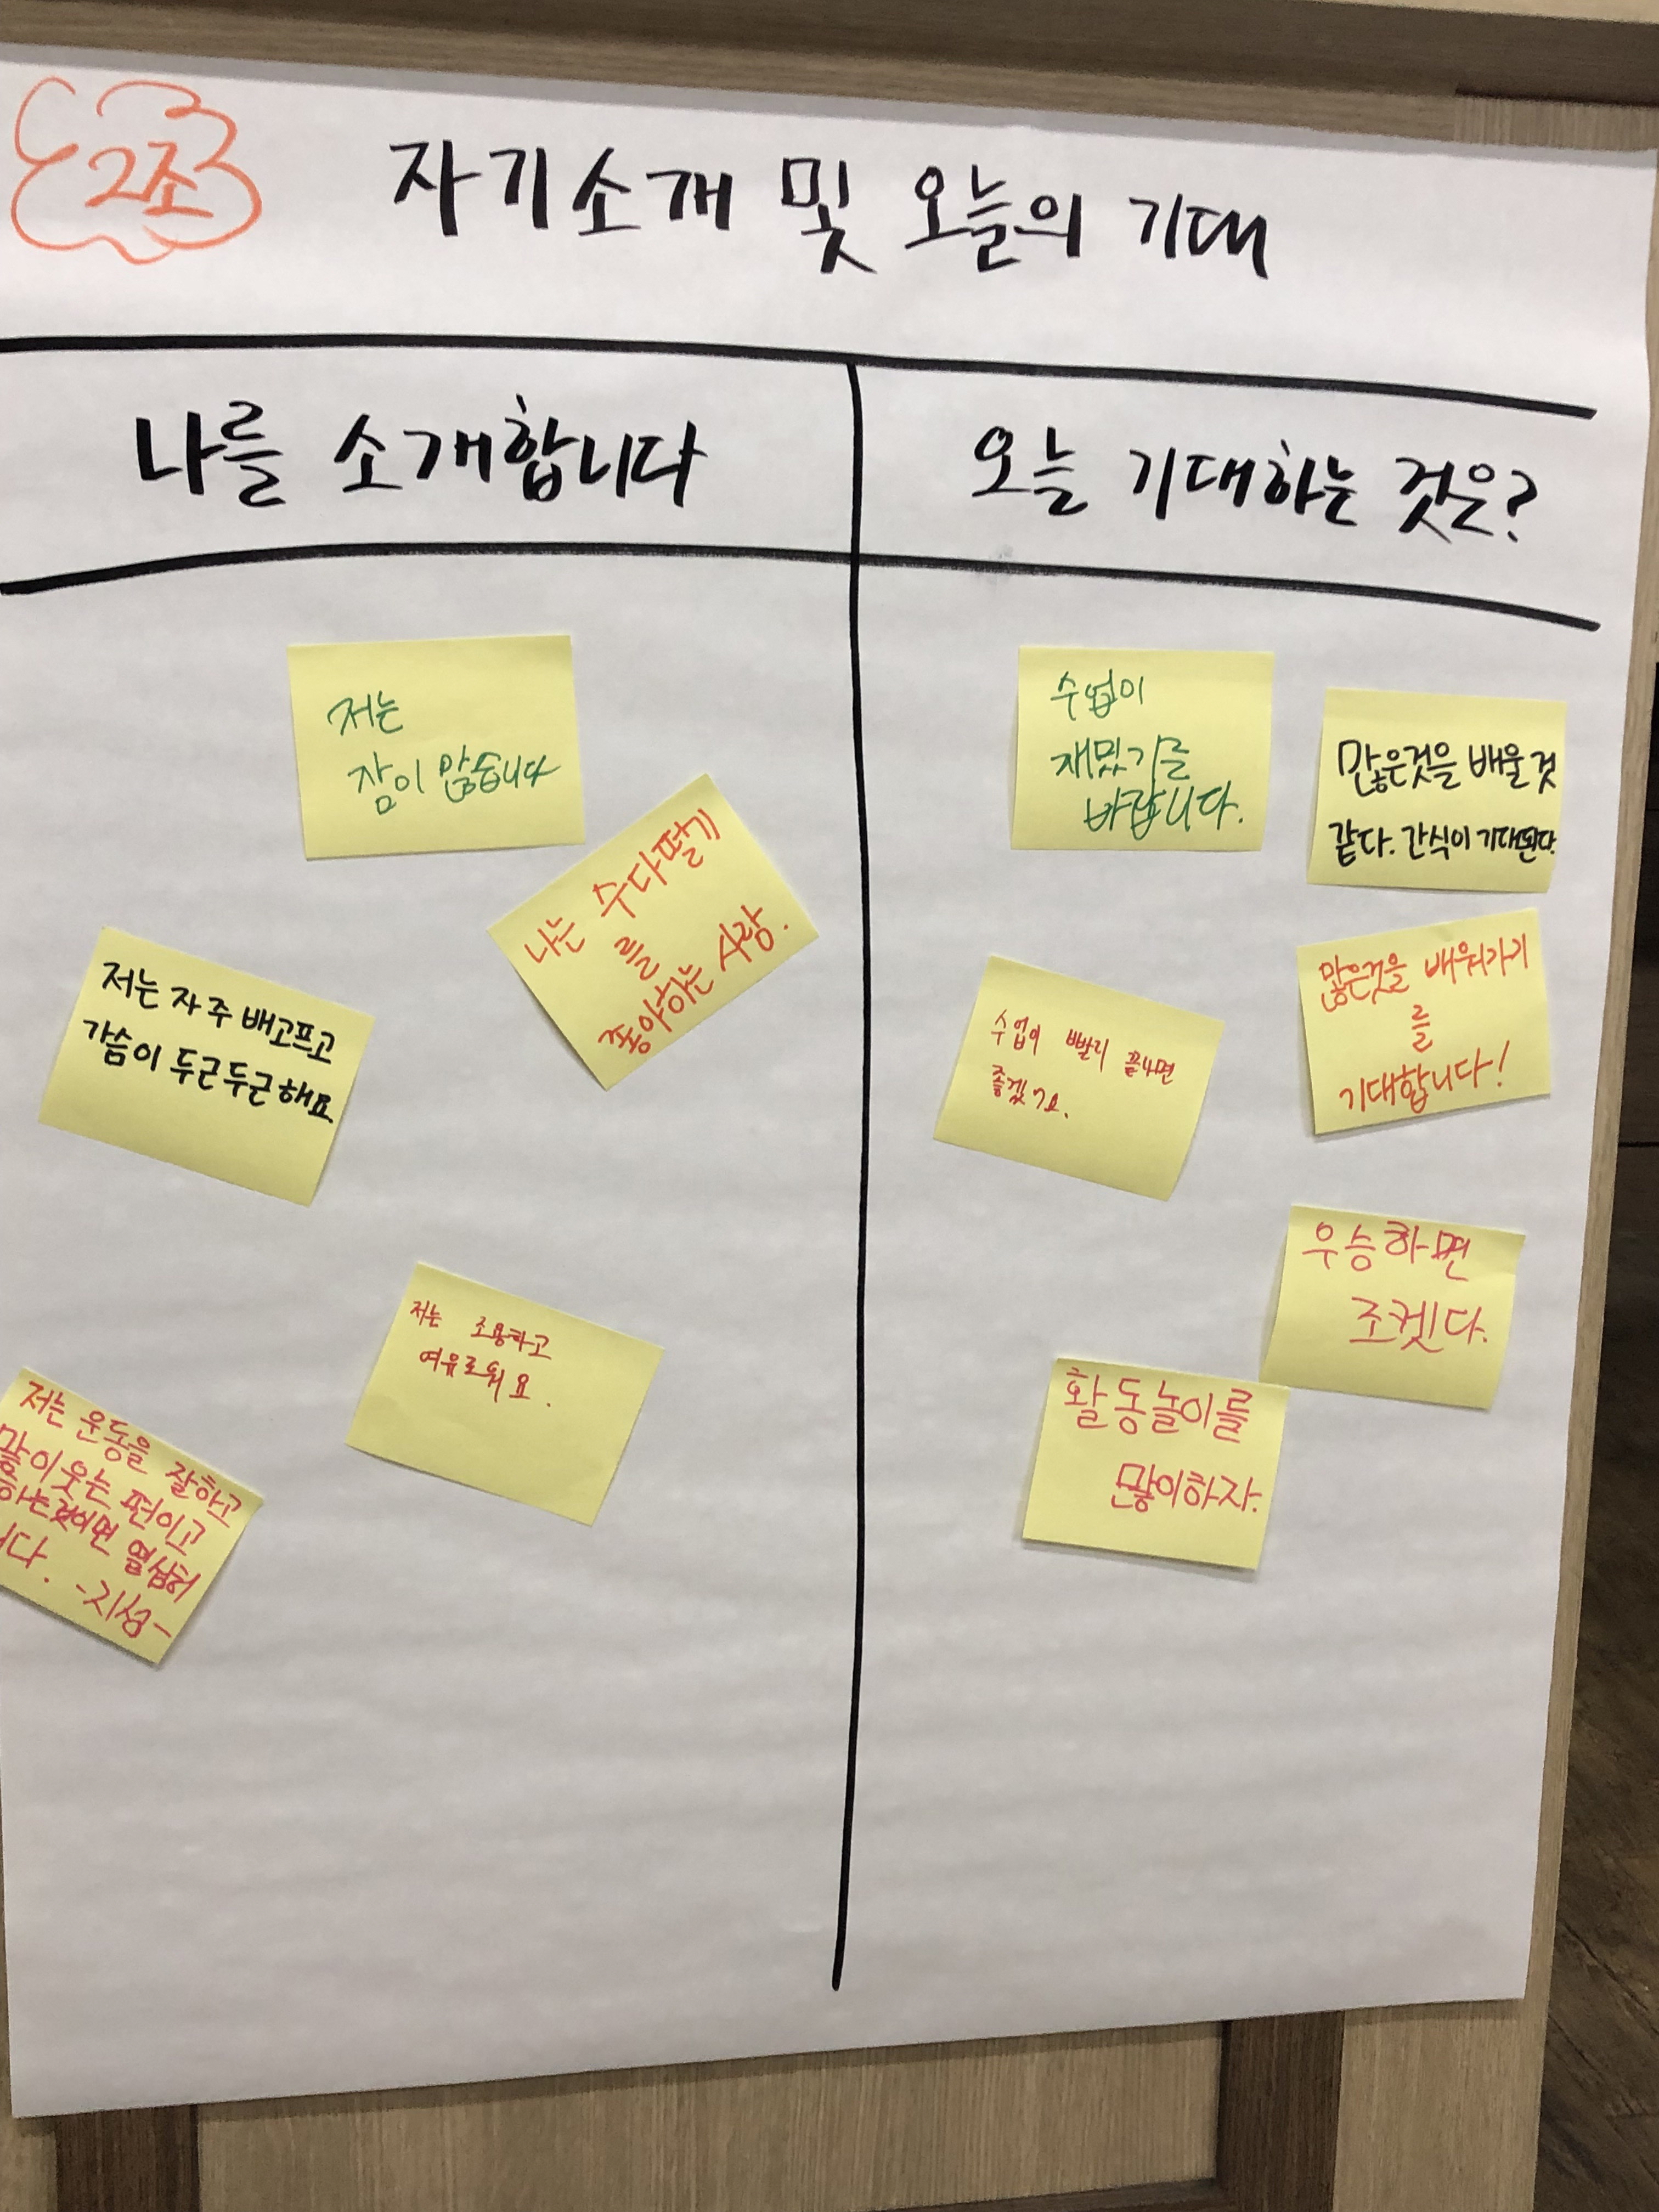 2조
자기소개 및 오늘의 기대
나를 소개합니다
저는
잠이 많습니다
나는 수다떨기
를
좋아하는 사람.
저는 자주 배고프고
가슴이 두근두근해요.
저는 조용하고
여유로워요.
저는 운동을 잘하고
많이웃는 편이고
하는것이면 열심히
니다. -지성-
오늘 기대하는 것은?
수업이
재밌기를
바랍니다.
많은것을 배울것
같다. 간식이 기대된다.
수업이 빨리 끝나면
좋겠
많은것을 배워가기
를
기대합니다!
우승하면
조켓다.
활동놀이를
많이하자.